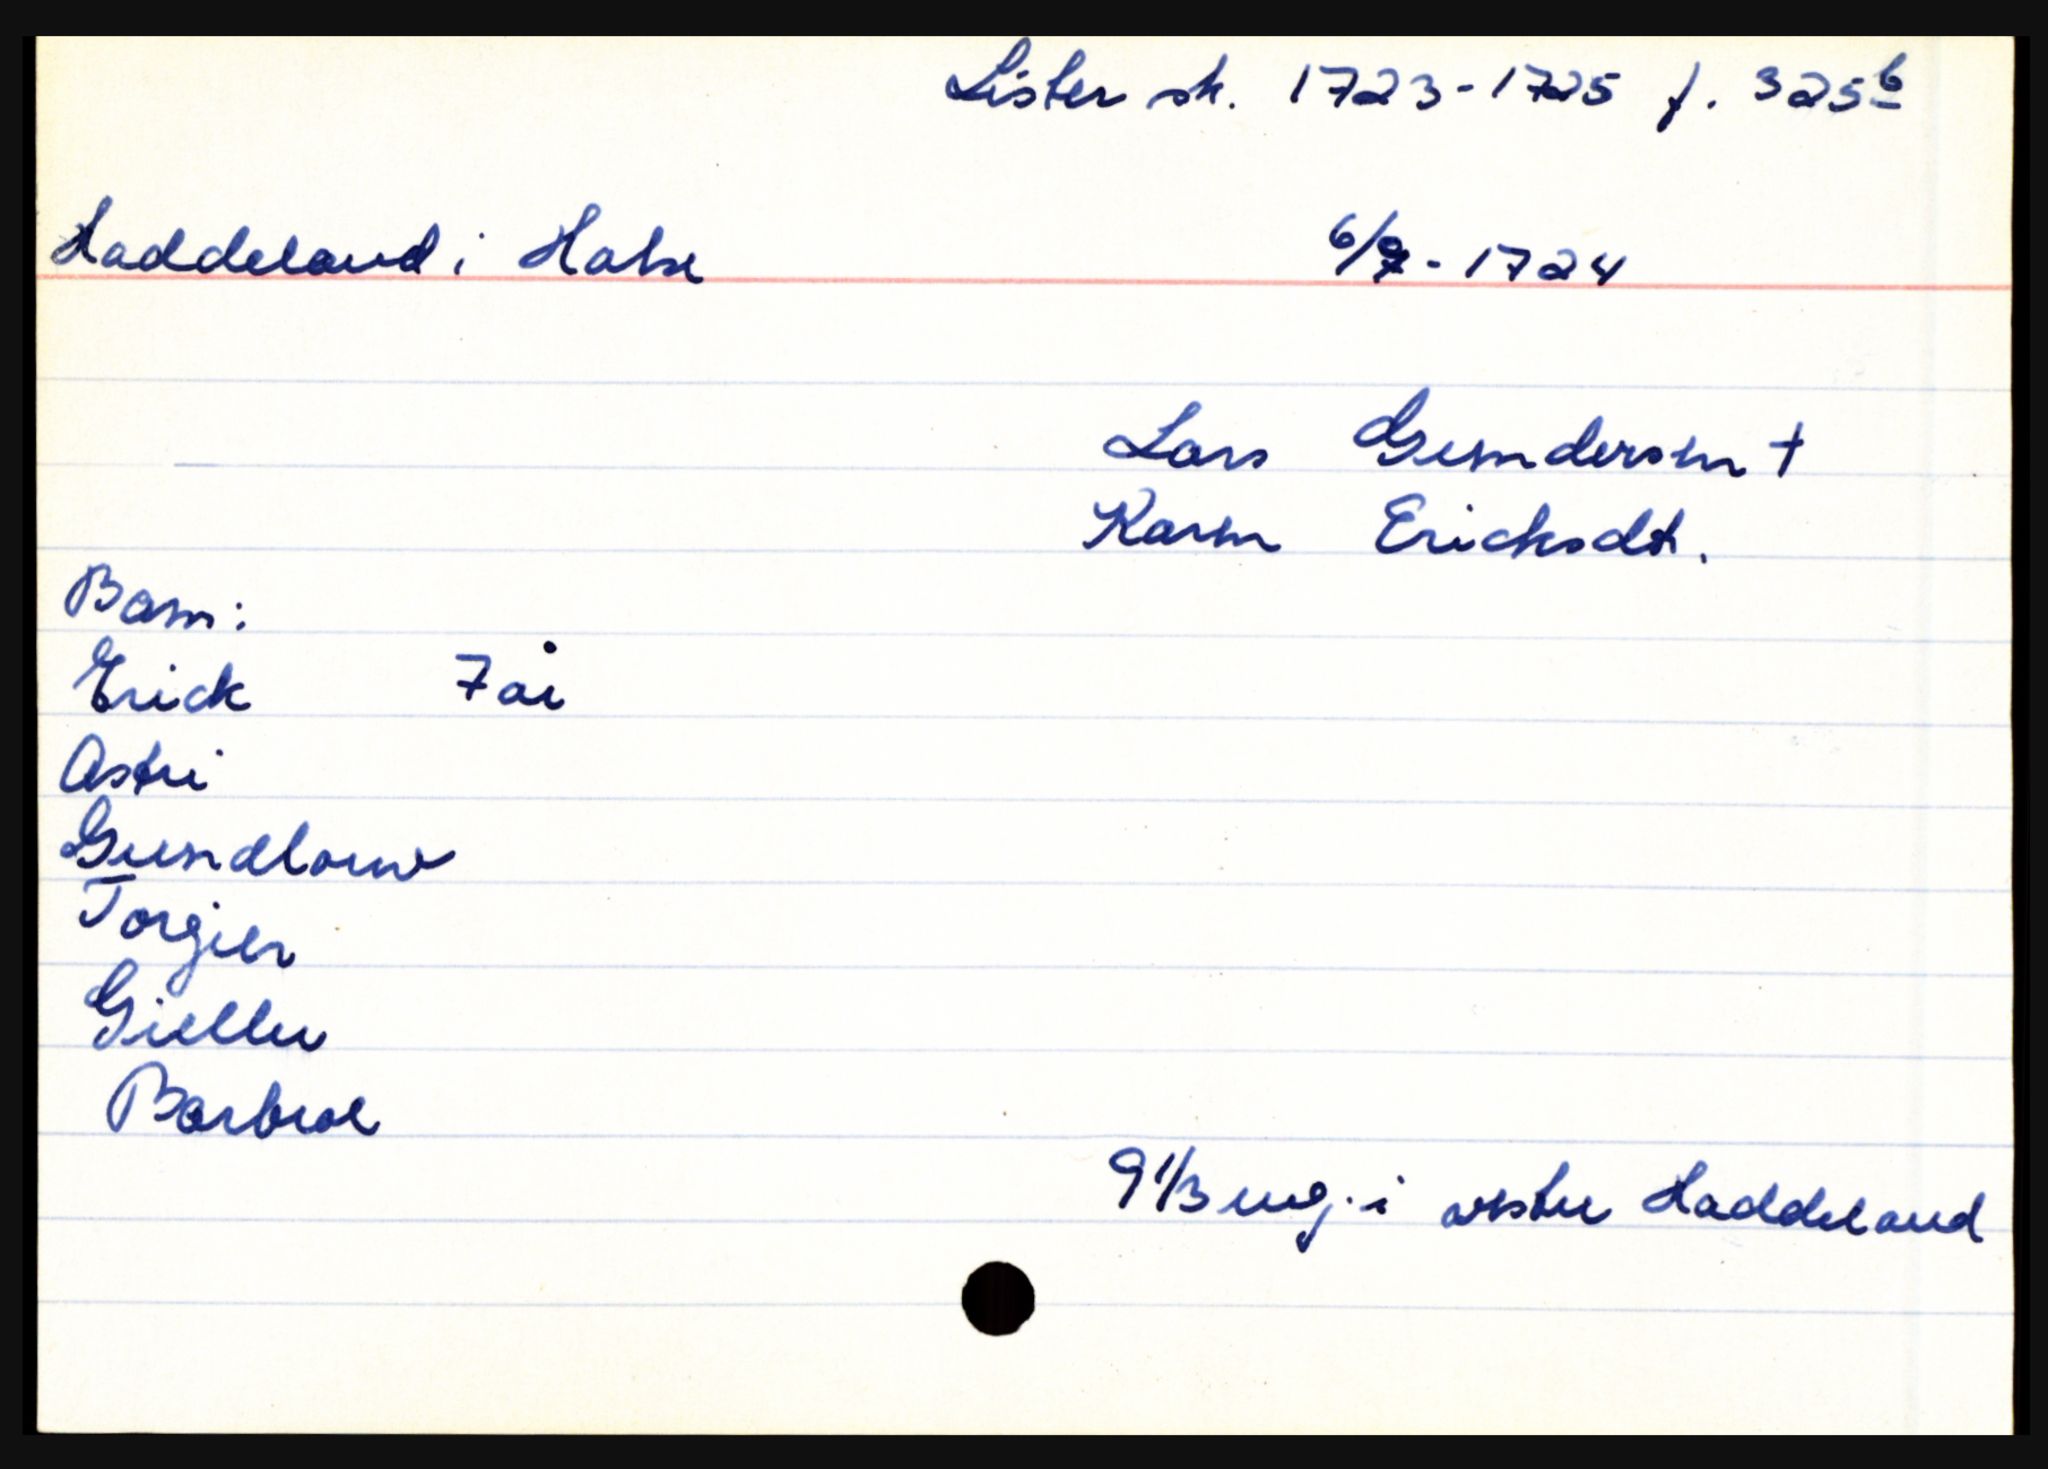 Lister sk. 1723-1725 f. 325b
Haddeland i Halse 6/9-1724
Lars Gundersen †
Karen Ericksdt.
Barn:
Erick 7 år
Astri
Gundlow
Torgier
Gieller
Barbroe
9 1/3 eng. i øster Haddeland